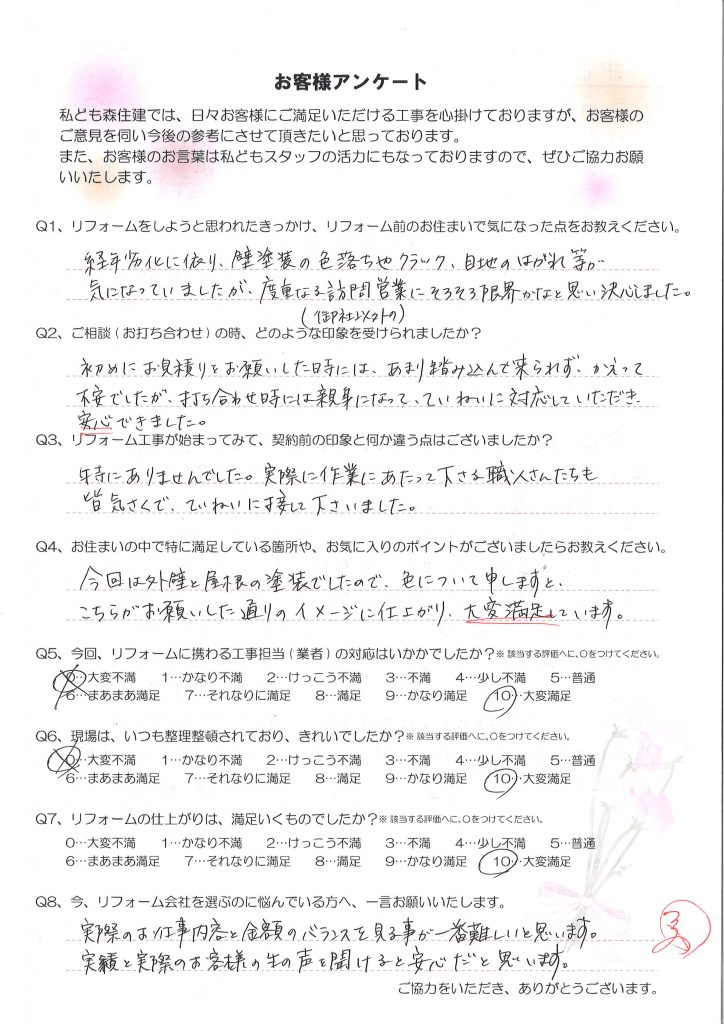 お客様アンケート
私ども森住建では、日々お客様にご満足いただける工事を心掛けておりますが、お客様の
ご意見を伺い今後の参考にさせて頂きたいと思っております。
また、お客様のお言葉は私どもスタッフの活力にもなっておりますので、ぜひご協力お願
いいたします。
Q1、リフォームをしようと思われたきっかけ、リフォーム前のお住まいで気になった点をお教えください。
経年劣化に依り、壁塗装の色落ちやクラック、目地のはがれ等が
気になっていましたが、度重なる訪問営業にそろそろ限界かなと思い決心しました。
(御社以外の)
Q2、ご相談(お打ち合わせ)の時、どのような印象を受けられましたか?
初めにお見積りをお願いした時には、あまり踏み込んで来られず、かえって
不安でしたが、打ち合わせ時には親身になって、ていねいに対応していただき、
安心できました。
Q3、リフォーム工事が始まってみて、契約前の印象と何か違う点はございましたか?
特にありませんでした。実際に作業にあたって下さる職人さんたちも
皆気さくで、ていねいに接して下さいました。
Q4、お住まいの中で特に満足している箇所や、お気に入りのポイントがございましたらお教えください。
今回は外壁と屋根の塗装でしたので、色について申しますと、
こちらがお願いした通りのイメージに仕上がり、大変満足しています。
Q5、今回、リフォームに携わる工事担当(業者)の対応はいかかでしたか?※該当する評価へに、〇をつけてください。
0…大変不満 1…かなり不満 2…けっこう不満 3…不満 4…少し不満 5…普通
6…まあまあ満足 7…それなりに満足 8…満足 9…かなり満足 10…大変満足
Q6、現場は、いつも整理整頓されており、きれいでしたか?※該当する評価へに、〇をつけてください。
0…大変不満 1…かなり不満 2…けっこう不満 3…不満 4…少し不満 5…普通
6…まあまあ満足 7…それなりに満足 8…満足 9…かなり満足 10…大変満足
Q7、リフォームの仕上がりは、満足いくものでしたか?※該当する評価へに、〇をつけてください。
0…大変不満 1…かなり不満 2…けっこう不満 3…不満 4…少し不満 5…普通
6…まあまあ満足 7…それなりに満足 8…満足 9…かなり満足 10…大変満足
Q8、今、リフォーム会社を選ぶのに悩んでいる方へ、一言お願いいたします。
実際のお仕事内容と金額のバランスを見る事が一番難しいと思います。
実績と実際のお客様の生の声を聞けると安心だと思います。
ご協力をいただき、ありがとうございます。